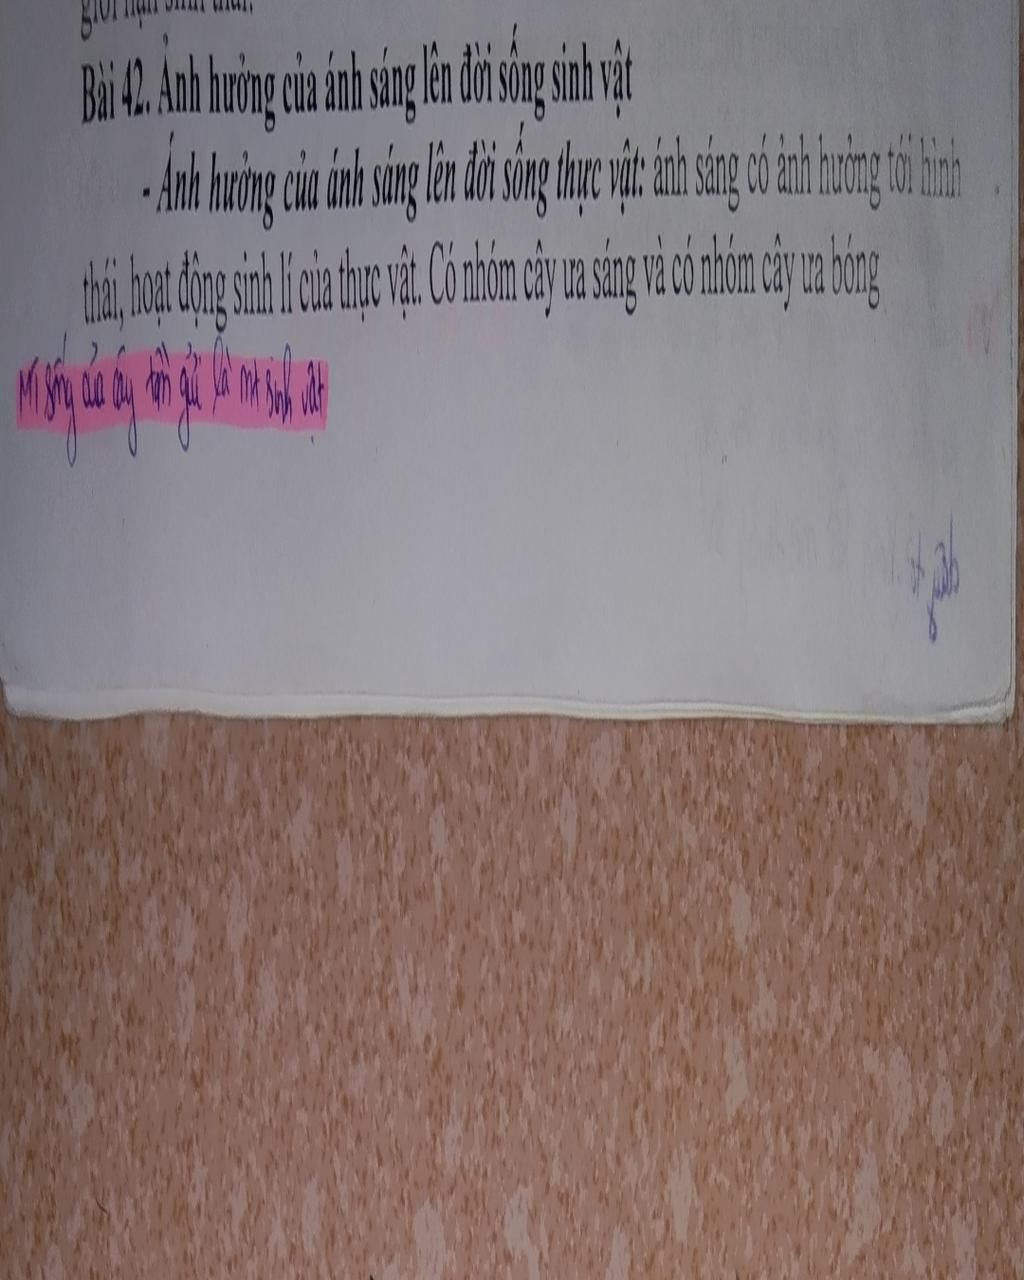 giới hạn sinh thái.
Bài 42. Ảnh hưởng của ánh sáng lên đời sống sinh vật
- Ảnh hưởng của ánh sáng lên đời sống thực vật: ánh sáng có ảnh hưởng tới hình
thái, hoạt động sinh lí của thực vật. Có nhóm cây ưa sáng và có nhóm cây ưa bóng
sống của cây tần gửi là mt sinh vật